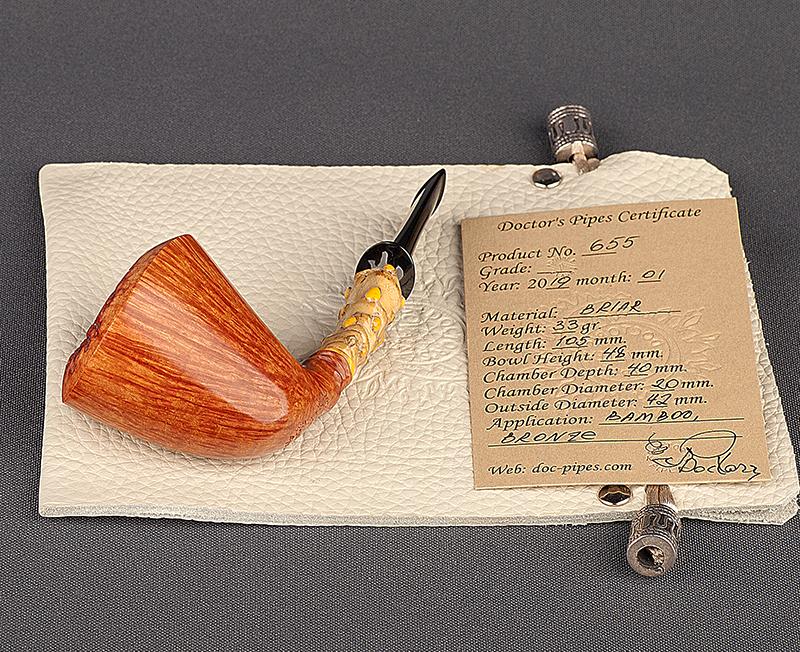 Doctor's Pipes Certificate
Product No. 655
Grade:
Year: 2019 month: 01
Material: BRIAR
Weight: 33 gr.
Length: 105 mm.
Bowl Height: 48 mm.
Chamber Depth: 40 mm.
Chamber Diameter: 20 mm.
Outside Diameter: 42 mm.
Application: BAMBOO,
BRONZE
Web: doc-pipes.com